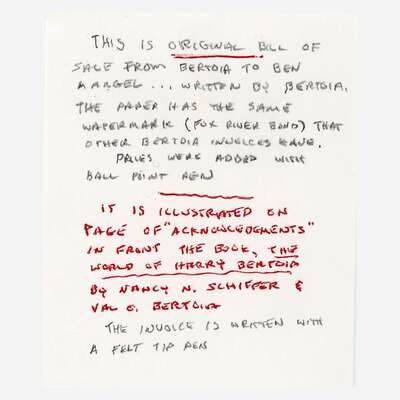 THIS IS ORIGINAL BILL OF
SALE FROM BERTOIA TO BEN
MANGEL ... WRITTEN BY BERTOIA.
THE PAPER HAS THE SAME
WATERMARK (FOX RIVER BOND) THAT
OTHER BERTOIA INVOICES HAVE.
PRICES WERE ADDED WITH
BALL POINT PEN
IT IS ILLUSTRATED ON
PAGE OF "ACKNOWLEDGEMENTS"
IN FRONT THE BOOK, THE
WORLD OF HARRY BERTOIA
BY NANCY N. SCHIFFER &
VAL O. BERTOIA
THE INVOICE IS WRITTEN WITH
A FELT TIP PEN